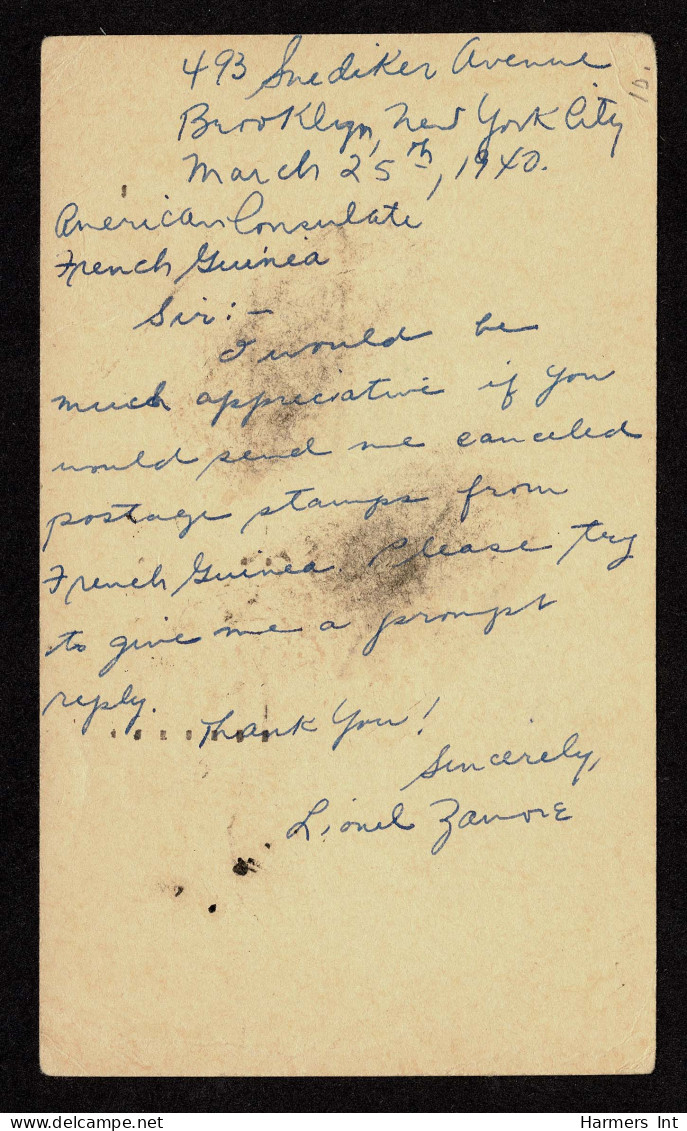 10.
493 Snediker Avenue
Brooklyn, New York City
March 25th, 1940.
American Consulate
French Guinea
Sir:-
I would be
much appreciative if you
would send me canceled
postage stamps from
French Guinea. Please try
to give me a prompt
reply.
Thank You!
Sincerely,
Lionel Zamore
delcampe.net
Harmers Int